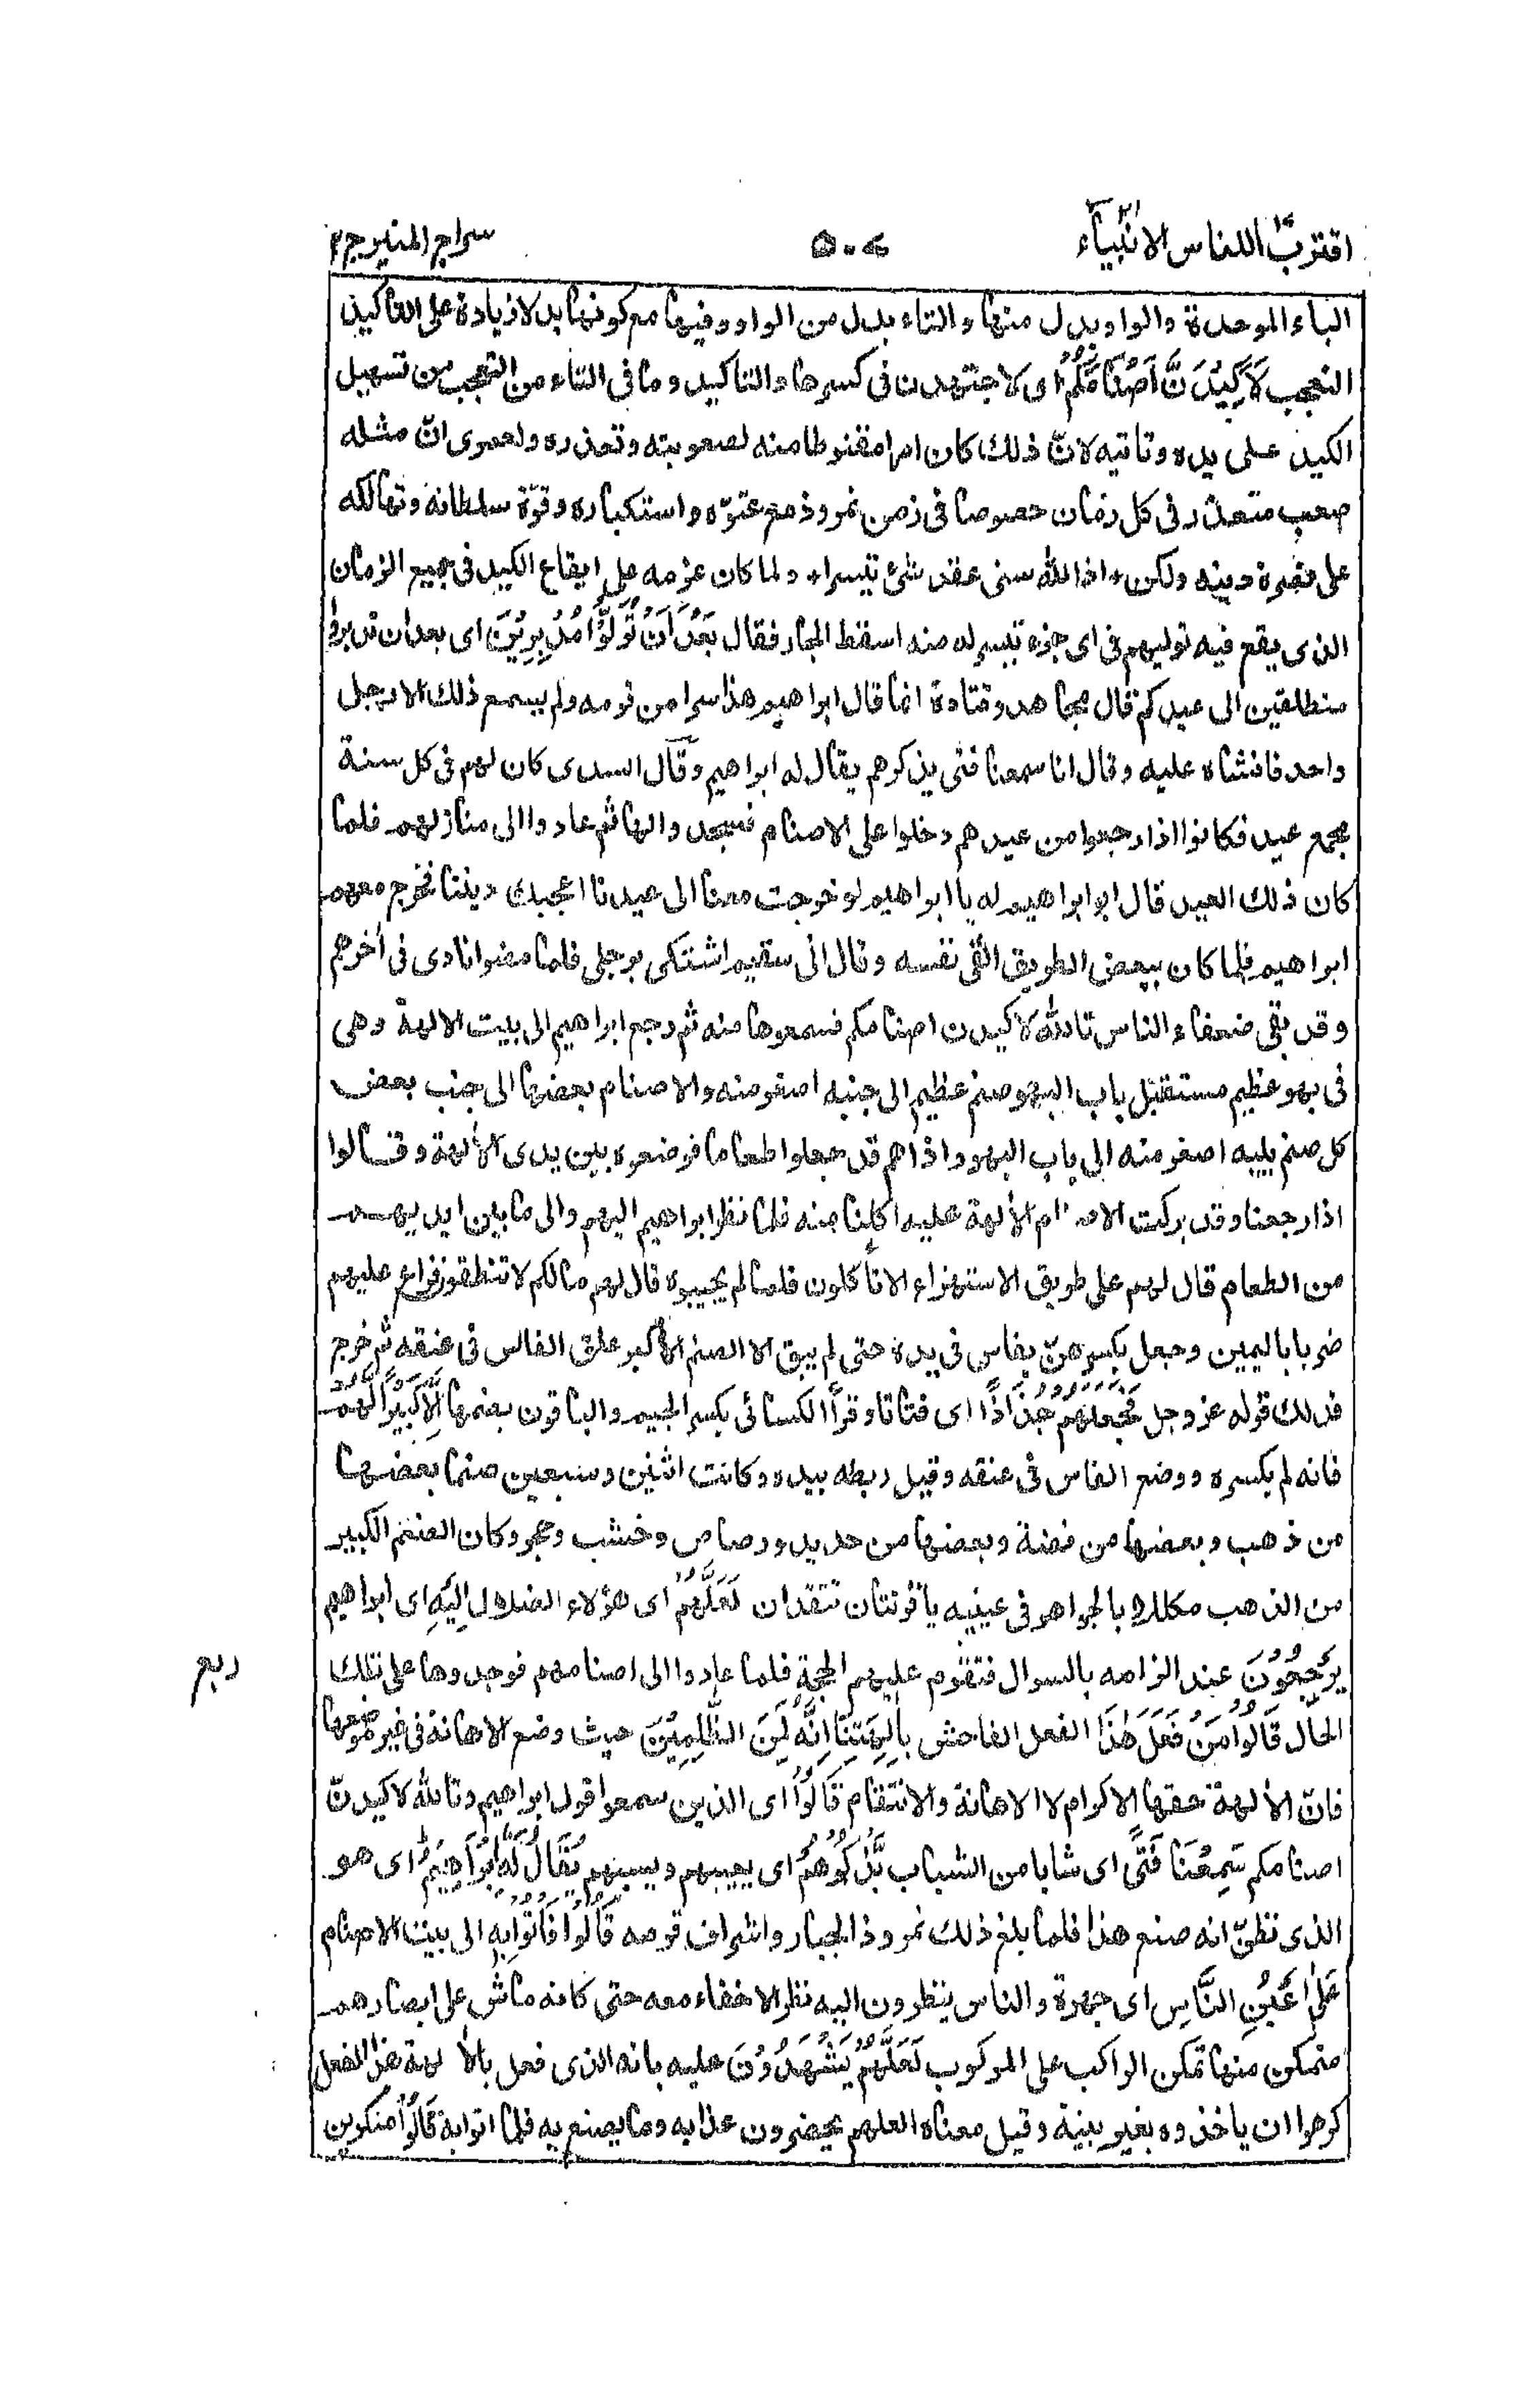 اقترب للناس الانبیآء
۵۰۷
سراج المنیر ج ۲
الباء الموحدة والواو بدل منها والتاء بدل من الواو وفيها مع كونها بدلا زيادة على التاكيد
التعجب لَاَكِيْدَنَّ اَصْنَامَكُمْ اى لاجتهدن فى كسرها والتاكيد وما فى التاء من التعجب من تسهيل
الكيد على يده وتاتيه لانّ ذلك كان امرا مقنوطا منه لصعوبته وتعذره ولعمرى انّ مثله
صعب متعذر فى كل زمان خصوصا فى زمن نمروذ مع عتوّه واستكباره وقوّة سلطانه وتهالكه
على نصرة دينه ولكن • اذا الله سنى عقد شئ تيسرا • ولما كان عزمه على ايقاع الكيد فى جميع الزمان
الذى يقع فيه توليهم فى اى جزء تيسر له منه اسقط الجار فقال بَعْدَ اَنْ تُوَلُّوْا مُدْبِرِيْنَ اى بعد ان تدبروا
منطلقين الى عيدكم قال مجاهد وقتادة انما قال ابراهيم هذا سرا من قومه ولم يسمع ذلك الا رجل
واحد فافشاه عليه وقال انا سمعنا فتى يذكرهم يقال له ابراهيم وقال السدى كان لهم فى كل سنة
مجمع عيد فكانوا اذا رجعوا من عيدهم دخلوا على الاصنام فسجدوا لها ثم عادوا الى منازلهم فلما
كان ذلك العيد قال ابو ابراهيم له يا ابراهيم لو خرجت معنا الى عيدنا اعجبك ديننا فخرج معهم
ابراهيم فلما كان ببعض الطريق القى نفسه وقال انى سقيم اشتكى برجلى فلما مضوا نادى فى اخرهم
وقد بقى ضعفاء الناس تالله لاكيدن اصنامكم فسمعوها منه ثم رجع ابراهيم الى بيت الالهة وهى
فى بهو عظيم مستقبل باب البهو صنم عظيم الى جنبه اصغر منه والاصنام بعضها الى جنب بعض
كل صنم يليه اصغر منه الى باب البهو واذا هم قد جعلوا طعاما فوضعوه بين يدى الالهة وقالوا
اذا رجعنا وقد بركت الالهة عليه اكلنا منه فلما نظر ابراهيم اليهم والى ما بين ايديهم
من الطعام قال لهم على طريق الاستهزاء الا تأكلون فلما لم يجيبوه قال لهم مالكم لا تنطقون فراغ عليهم
ضربا باليمين وجعل يكسرهنّ بفاس فى يده حتى لم يبق الا الصنم الاكبر علق الفاس فى عنقه ثم خرج
فذلك قوله عز وجل فَجَعَلَهُمْ جُذَاذًا اى فتاتا وقرأ الكسائى بكسر الجيم والباقون بضمها اِلَّا كَبِيْرًا لَّهُمْ
فانه لم يكسره ووضع الفاس فى عنقه وقيل ربطه بيده وكانت اثنين وسبعين صنما بعضها
من ذهب وبعضها من فضة وبعضها من حديد ورصاص وخشب وحجر وكان الصنم الكبير
من الذهب مكللا بالجواهر فى عينيه ياقوتتان تتقدان لَعَلَّهُمْ اى هؤلاء الضلال اِلَيْهِ اى ابراهيم
يَرْجِعُوْنَ عند الزامه بالسوال فتقوم عليهم الحجة فلما عادوا الى اصنامهم فوجدوها على تلك
ربع
الحال قَالُوْا مَنْ فَعَلَ هٰذَا الفعل الفاحش بِاٰلِهَتِنَا اِنَّهٗ لَمِنَ الظّٰلِمِيْنَ حيث وضع الاهانة فى غير موضعها
فانّ الألهة حقها الاكرام لا الاهانة والانتقام قَالُوْا اى الذين سمعوا قول ابراهيم وتالله لاكيدنّ
اصنامكم سَمِعْنَا فَتًى اى شابا من الشباب يَّذْكُرُهُمْ اى يعيبهم ويسبهم يُقَالُ لَهٗٓ اِبْرَاهِيْمُ اى هو
الذى نظنّ انه صنع هذا فلما بلغ ذلك نمروذ الجبار واشراف قومه قَالُوْا فَاْتُوْا بِهٖ الى بيت الاصنام
عَلٰٓى اَعْيُنِ النَّاسِ اى جهرة والناس ينظرون اليه نظرا لا خفاء معه حتى كانه ماش على ابصارهم
متمكن منها تمكن الراكب على المركوب لَعَلَّهُمْ يَشْهَدُوْنَ عليه بانه الذى فعل بالالهة هذا الفعل
كرهوا ان ياخذوه بغير بينة وقيل معناه لعلهم يحضرون عذابه وما يصنع به فلما اتوا به قَالُوْا منكرين